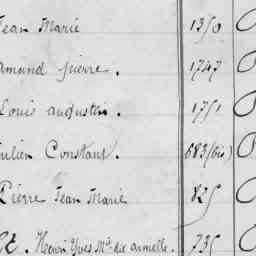 Jean Marie 1350
Amand pierre. 1747
Louis augustin. 1751
Julien Constant. 683 (bis)
Pierre Jean Marie 825
Henri Yves Mie dix armelle. 735